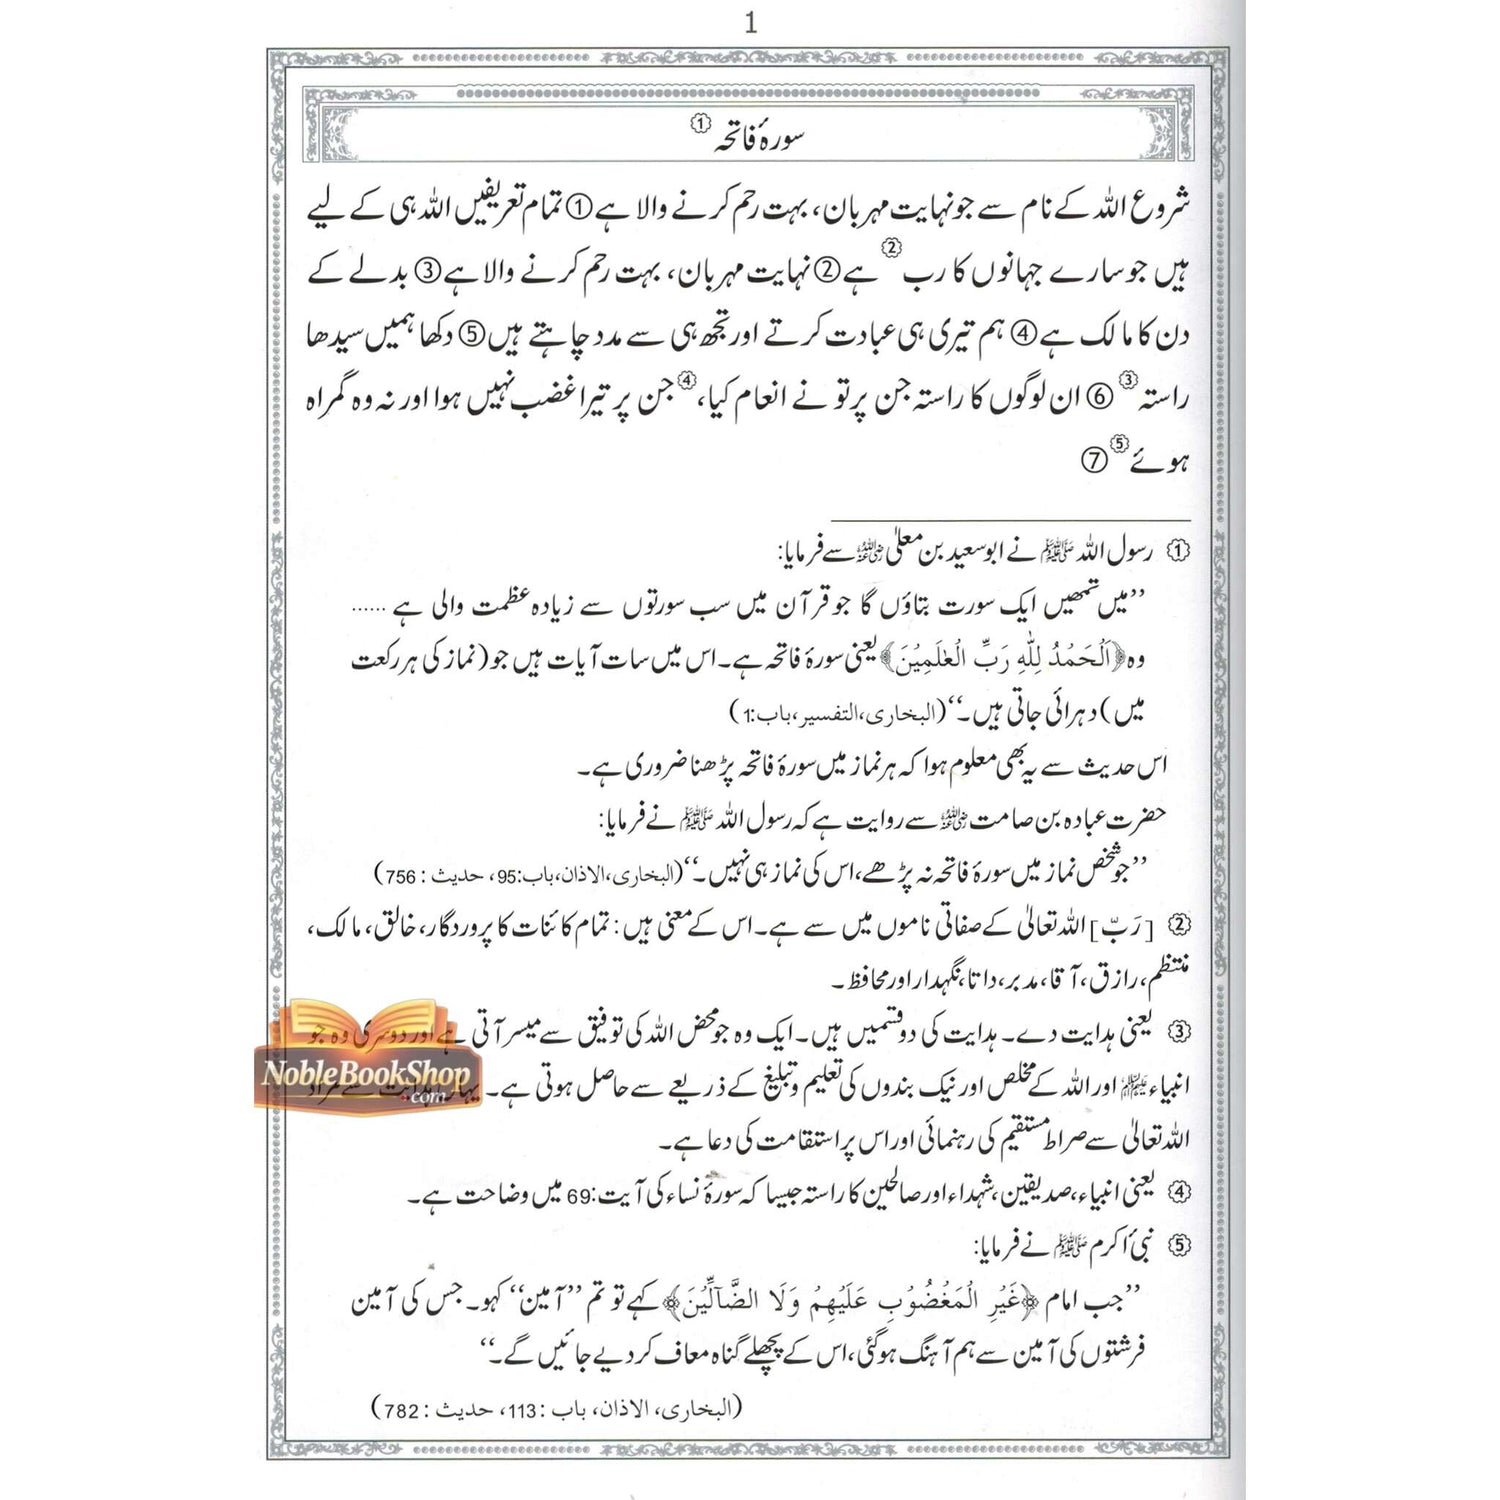 1
سورۂ فاتحہ ①
شروع اللہ کے نام سے جو نہایت مہربان، بہت رحم کرنے والا ہے ① تمام تعریفیں اللہ ہی کے لیے
ہیں جو سارے جہانوں کا رب ② ہے ② نہایت مہربان، بہت رحم کرنے والا ہے ③ بدلے کے
دن کا مالک ہے ④ ہم تیری ہی عبادت کرتے اور تجھ ہی سے مدد چاہتے ہیں ⑤ دکھا ہمیں سیدھا
راستہ ③ ⑥ ان لوگوں کا راستہ جن پر تو نے انعام کیا، ④ جن پر تیرا غضب نہیں ہوا اور نہ وہ گمراہ
ہوئے ⑤ ⑦
① رسول اللہ ﷺ نے ابوسعید بن معلیٰ رضی اللہ عنہ سے فرمایا:
’’میں تمھیں ایک سورت بتاؤں گا جو قرآن میں سب سورتوں سے زیادہ عظمت والی ہے ......
وہ ﴿اَلْحَمْدُ لِلّٰهِ رَبِّ الْعٰلَمِيْنَ﴾ یعنی سورۂ فاتحہ ہے۔ اس میں سات آیات ہیں جو (نماز کی ہر رکعت
میں) دہرائی جاتی ہیں۔‘‘ (البخاری، التفسیر، باب:1)
اس حدیث سے یہ بھی معلوم ہوا کہ ہر نماز میں سورۂ فاتحہ پڑھنا ضروری ہے۔
حضرت عبادہ بن صامت رضی اللہ عنہ سے روایت ہے کہ رسول اللہ ﷺ نے فرمایا:
’’جو شخص نماز میں سورۂ فاتحہ نہ پڑھے، اس کی نماز ہی نہیں۔‘‘ (البخاری، الاذان، باب:95، حدیث : 756)
② [رَبّ] اللہ تعالیٰ کے صفاتی ناموں میں سے ہے۔ اس کے معنی ہیں: تمام کائنات کا پروردگار، خالق، مالک،
منتظم، رازق، آقا، مدبر، داتا، نگہدار اور محافظ۔
③ یعنی ہدایت دے۔ ہدایت کی دو قسمیں ہیں۔ ایک وہ جو محض اللہ کی توفیق سے میسر آتی ہے اور دوسری وہ جو
انبیاء علیہم السلام اور اللہ کے مخلص اور نیک بندوں کی تعلیم و تبلیغ کے ذریعے سے حاصل ہوتی ہے۔ یہاں ہدایت سے مراد
اللہ تعالیٰ سے صراط مستقیم کی رہنمائی اور اس پر استقامت کی دعا ہے۔
④ یعنی انبیاء، صدیقین، شہداء اور صالحین کا راستہ جیسا کہ سورۂ نساء کی آیت:69 میں وضاحت ہے۔
⑤ نبیٔ اکرم ﷺ نے فرمایا:
’’جب امام ﴿غَيْرِ الْمَغْضُوْبِ عَلَيْهِمْ وَلَا الضَّآلِّيْنَ﴾ کہے تو تم ’’آمین‘‘ کہو۔ جس کی آمین
فرشتوں کی آمین سے ہم آہنگ ہوگئی، اس کے پچھلے گناہ معاف کر دیے جائیں گے۔‘‘
(البخاری، الاذان، باب : 113، حدیث : 782)
NobleBookShop
.com